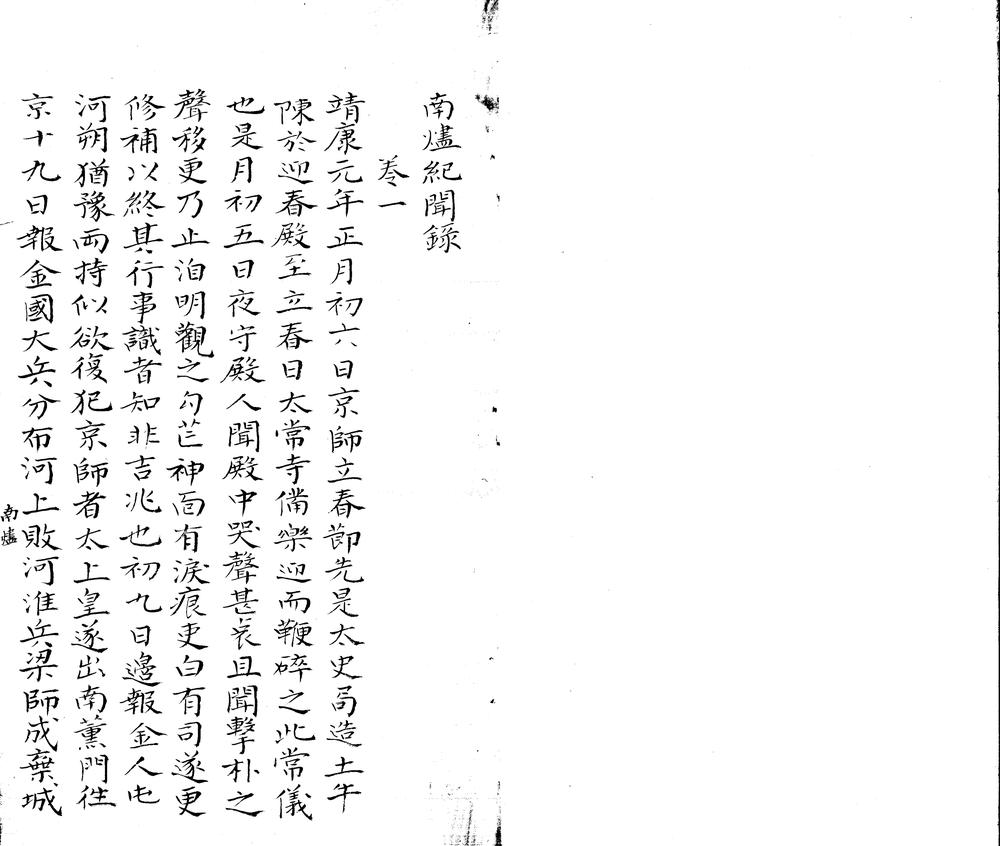 南燼紀聞錄
卷一
靖康元年正月初六日京師立春節先是太史局造土牛
陳於迎春殿至立春日太常寺備樂迎而鞭碎之此常儀
也是月初五日夜守殿人聞殿中哭聲甚哀且聞擊朴之
聲移更乃止洎明觀之勾芒神面有淚痕吏白有司遂更
修補以終其行事識者知非吉兆也初九日邊報金人屯
河朔猶豫兩持似欲復犯京師者太上皇遂出南薰門往
京十九日報金國大兵分布河上敗河淮兵梁師成棄城
南燼